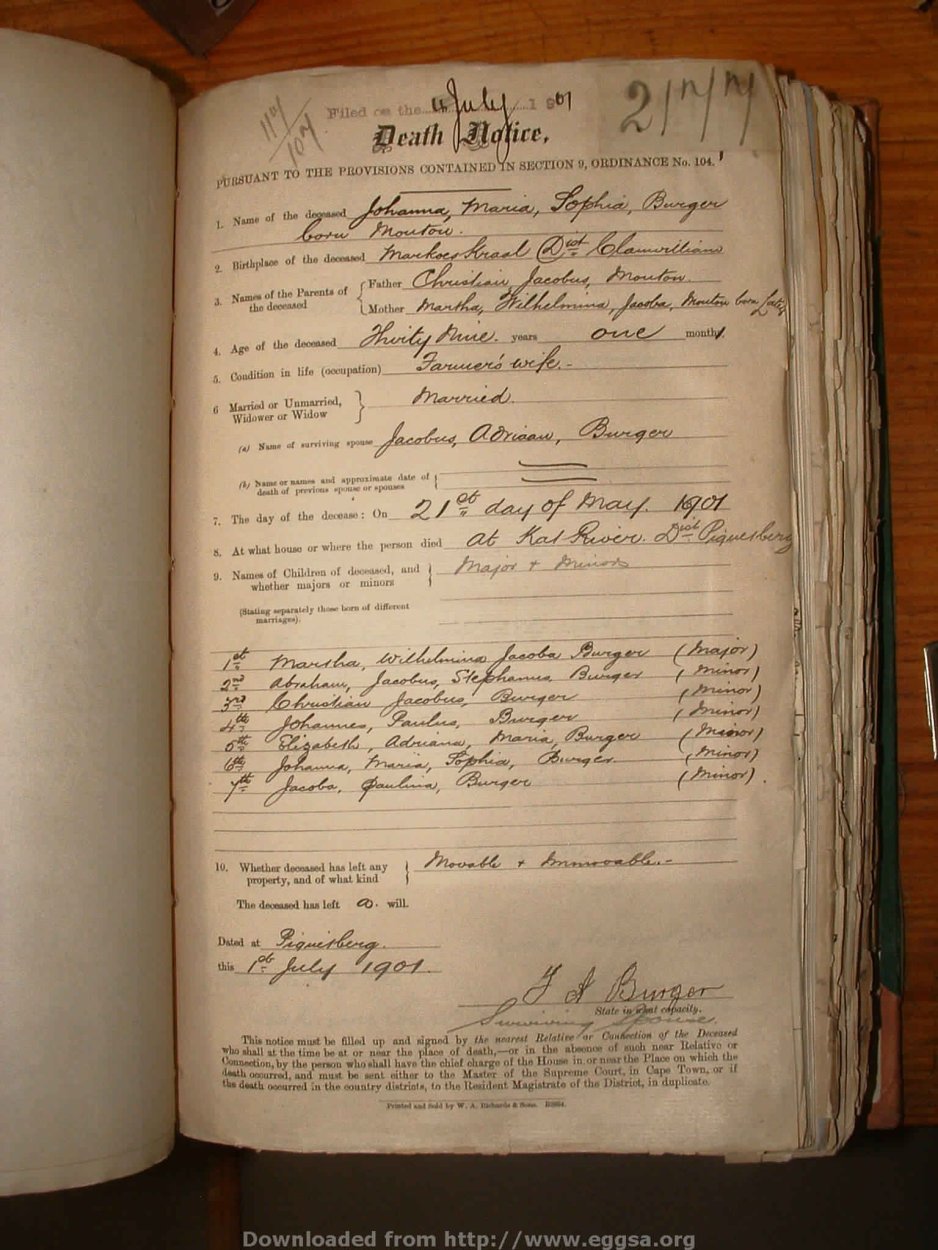 Filed on the 4 July 1901
21/7/
Death Notice.
PURSUANT TO THE PROVISIONS CONTAINED IN SECTION 9, ORDINANCE No. 104.
1. Name of the deceased Johanna, Maria, Sophia, Burger
born Mouton.
2. Birthplace of the deceased Markoeskraal Dist Clanwilliam
3. Names of the Parents of the deceased { Father Christian, Jacobus, Mouton.
Mother Martha, Wilhelmina, Jacoba, Mouton born
4. Age of the deceased Thirty Nine. years one month
5. Condition in life (occupation) Farmer's wife.-
6 Married or Unmarried, Widower or Widow } Married.
(a) Name of surviving spouse Jacobus, Adriaan, Burger
(b) Name or names and approximate date of death of previous spouse or spouses {
7. The day of the decease: On 21st day of May. 1901
8. At what house or where the person died at Kat River. Dist Piquetberg
9. Names of Children of deceased, and whether majors or minors } Major + Minors
(Stating separately those born of different marriages).
1st Martha, Wilhelmina Jacoba Burger (Major)
2nd Abraham, Jacobus, Stephanus, Burger (Minor)
3rd Christian Jacobus, Burger (Minor)
4th Johannes, Paulus, Burger (Minor)
5th Elizabeth, Adriana, Maria, Burger (Minor)
6th Johanna, Maria, Sophia, Burger (Minor)
7th Jacoba, Paulina, Burger (Minor).
10. Whether deceased has left any property, and of what kind } Movable + Immovable.-
The deceased has left a. will.
Dated at Piquetberg.
this 1st July 1901.
J A Burger
State in what capacity.
Surviving Spouse.
This notice must be filled up and signed by the nearest Relative or Connection of the Deceased
who shall at the time be at or near the place of death,—or in the absence of such near Relative or
Connection, by the person who shall have the chief charge of the House in or near the Place on which the
death occurred, and must be sent either to the Master of the Supreme Court, in Cape Town, or if
the death occurred in the country districts, to the Resident Magistrate of the District, in duplicate.
Printed and Sold by W. A. Richards & Sons.
Downloaded from http://www.eggsa.org